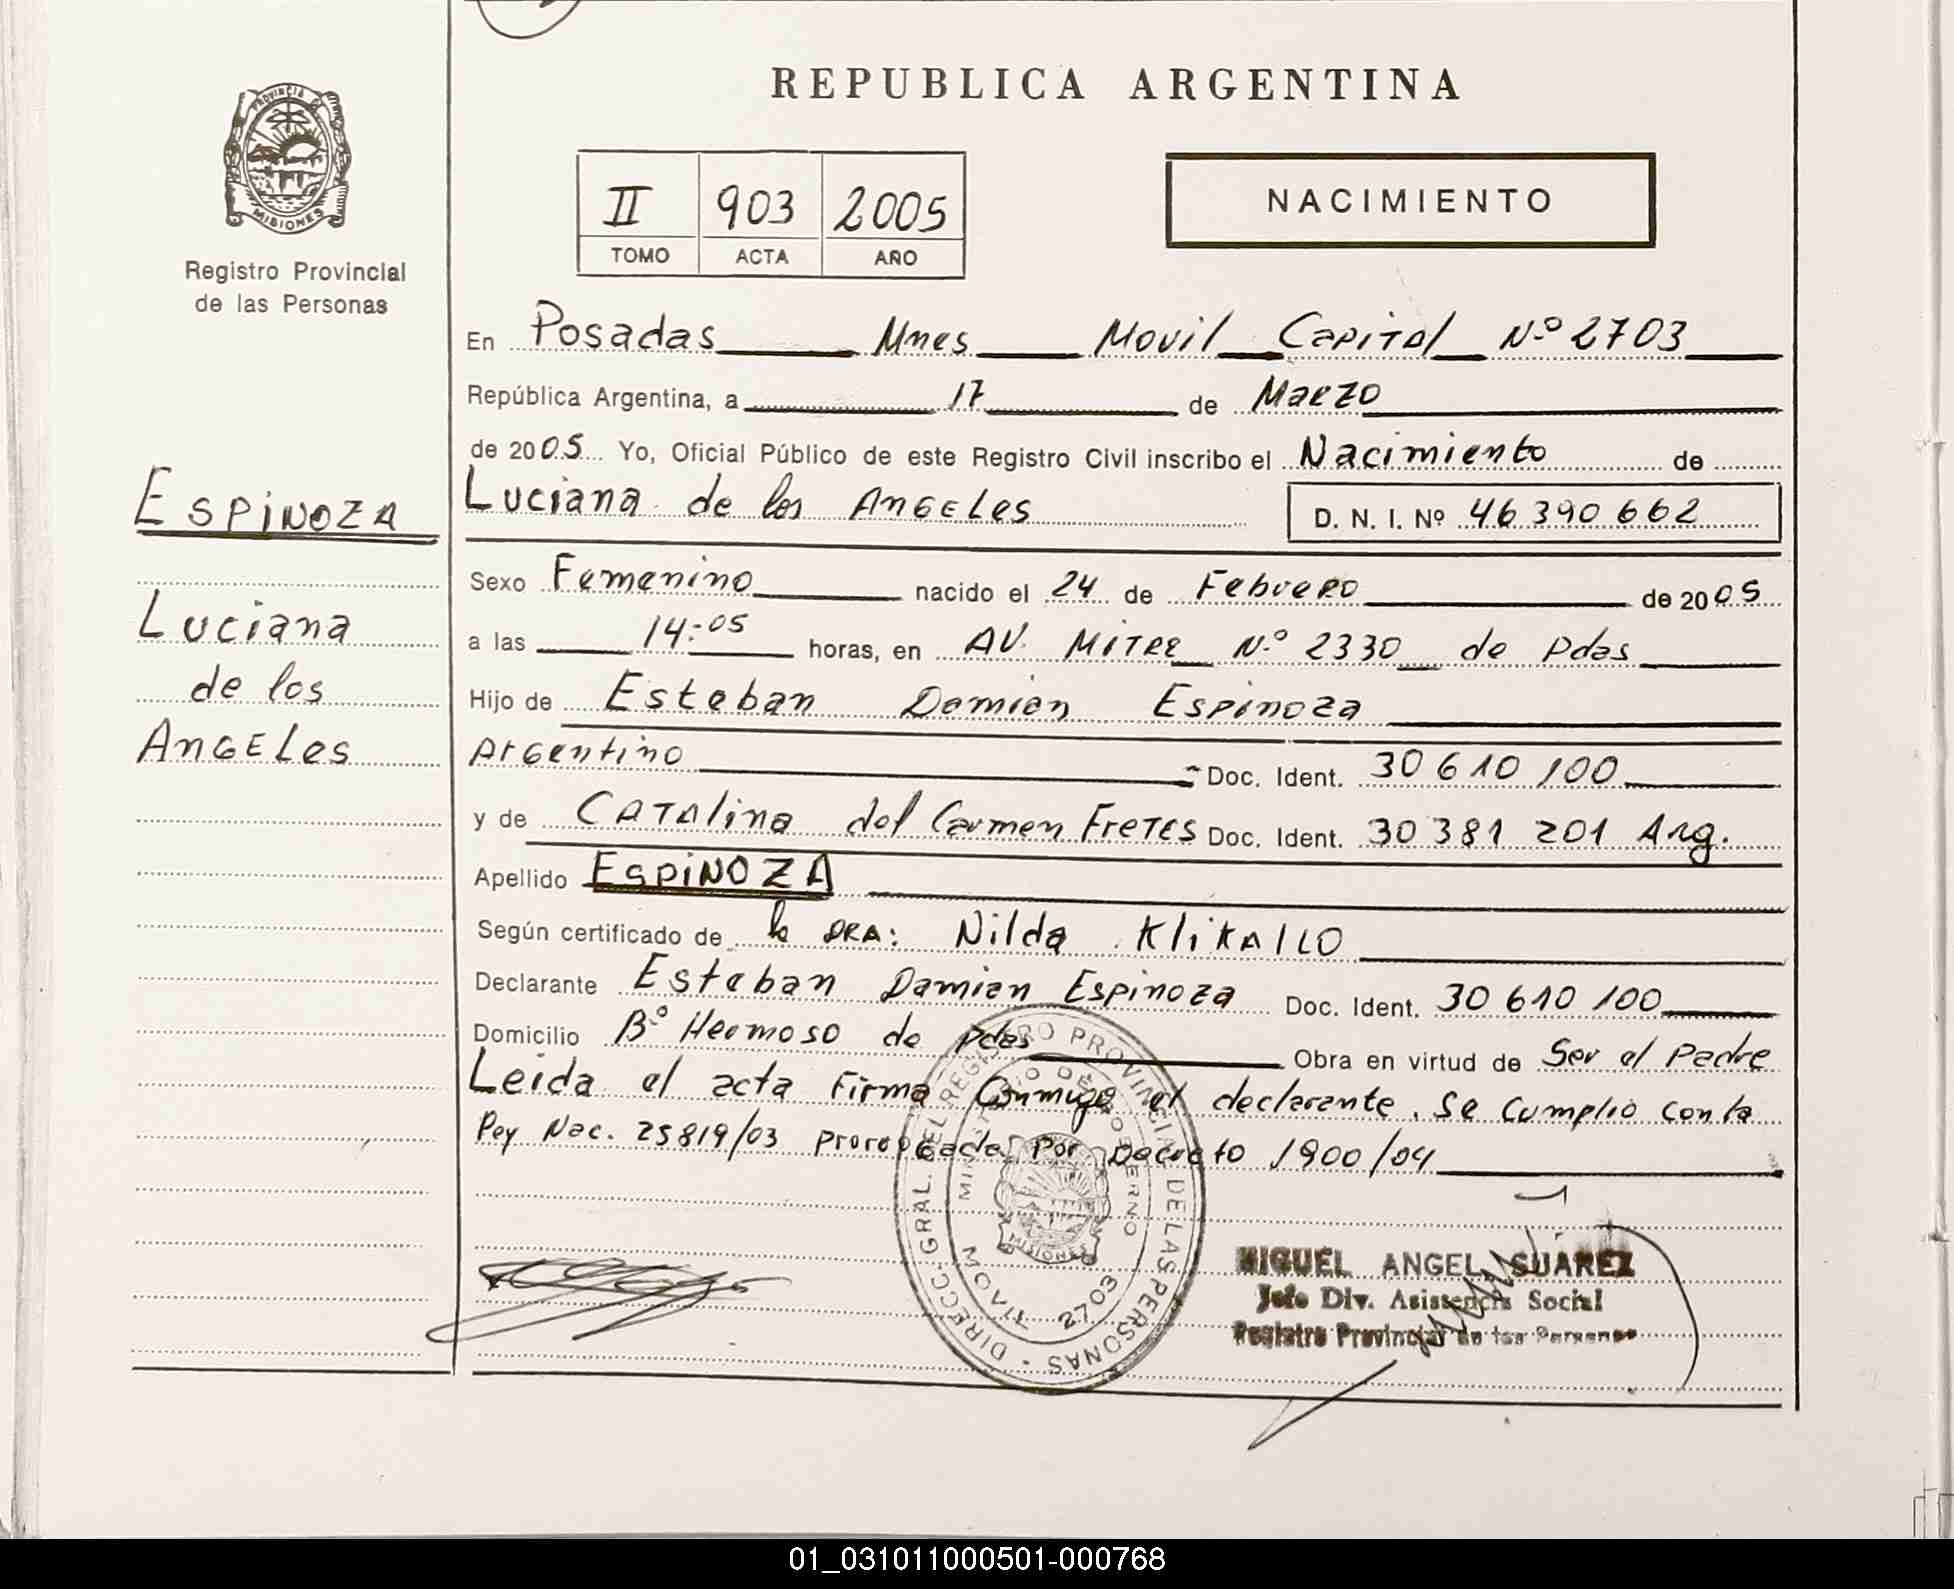 PROVINCIA D
MISIONES
Registro Provincial
de las Personas
ESPINOZA
Luciana
de los
ANGELes
REPUBLICA ARGENTINA
II 903 2005
TOMO ACTA AÑO
NACIMIENTO
En Posadas Mnes Movil Capital Nº 2703
República Argentina, a 17 de Marzo
de 2005 Yo, Oficial Público de este Registro Civil inscribo el Nacimiento de
Luciana de los ANGELes D. N. I. Nº 46 390 662
Sexo Femenino nacido el 24 de Febrero de 2005
a las 14:05 horas, en AV. MITRE N.º 2330 de Pdas
Hijo de Esteban Damian Espinoza
Argentino Doc. Ident. 30 610 100
y de CATAlina del Carmen FreTES Doc. Ident. 30 381 201 Arg.
Apellido ESPiNOZA
Según certificado de la DRA: Nilda KliKAILO
Declarante Esteban Damian Espinoza Doc. Ident. 30 610 100
Domicilio Bº Hermoso de Pdas Obra en virtud de Ser el Padre
Leida el acta Firma Conmigo el declarante. Se Cumplio con la
Ley Nac. 25819/03 prorrogada por Decreto 1900/04
DIRECC. GRAL. DEL REGISTRO PROVINCIAL DE LAS PERSONAS
MINISTERIO DE GOBIERNO
MISIONES
MOVIL 2703
MIGUEL ANGEL SUAREZ
Jefe Div. Asistencia Social
Registro Provincial de las Personas
01_031011000501-000768